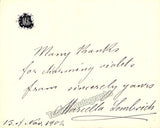 Many thanks
for charming violets
from sincerely yours
Marcella Sembrich
15. Nov. 1904